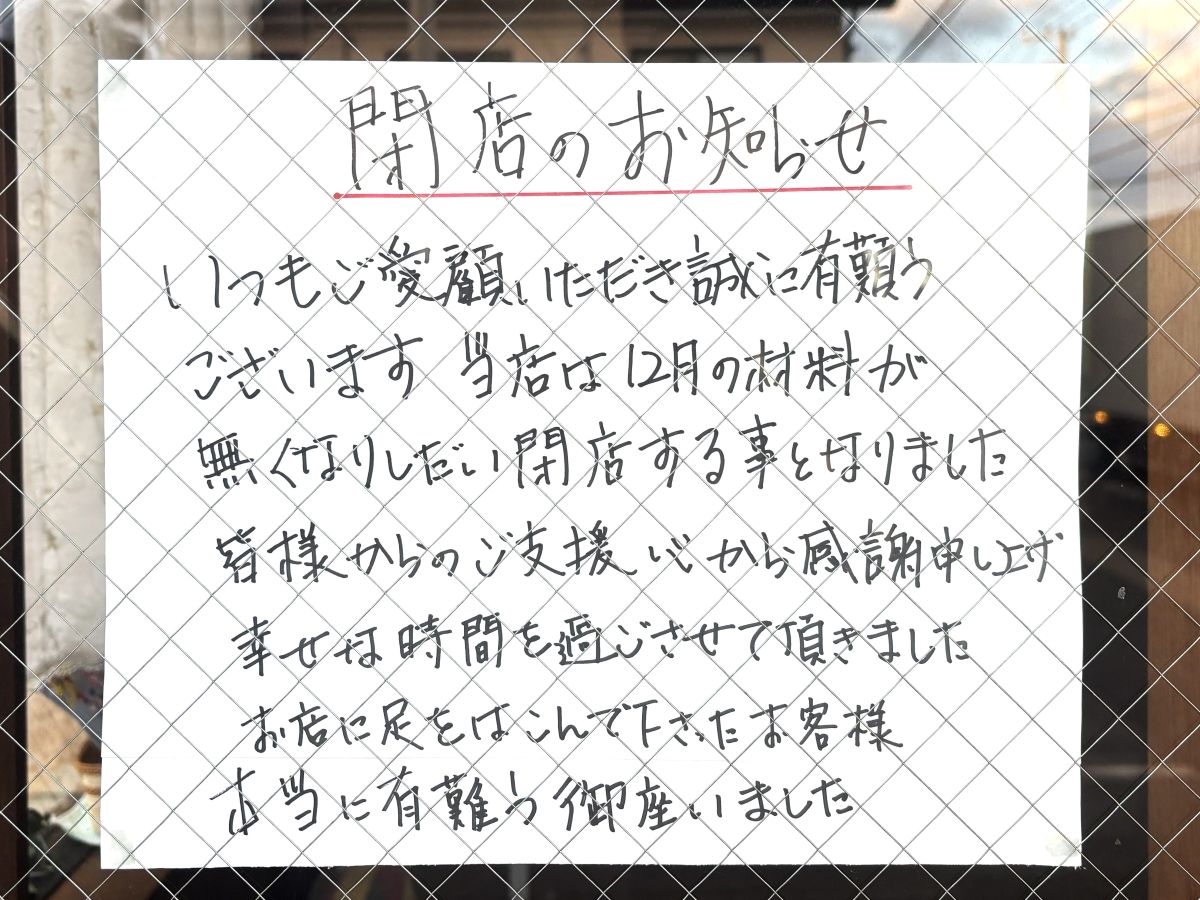 閉店のお知らせ
いつもご愛顧いただき誠に有難う
ございます 当店は12月の材料が
無くなりしだい閉店する事となりました
皆様からのご支援心から感謝申し上げ
幸せな時間を過ごさせて頂きました
お店に足をはこんで下さたお客様
本当に有難う御座いました